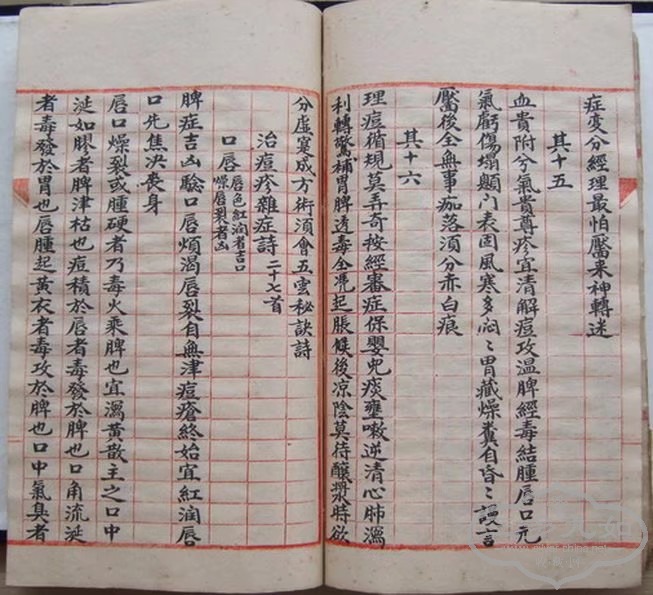 症变分經理最怕靨来神轉迷
其十五
血貴附兮氣貴尊疹宜清解痘攻温脾經毒結腫唇口元
氣虧傷塌顖门表固風寒多闷〻胃藏燥糞自昏〻譫言
靨後全無事痂落須分赤白痕
其十六
理痘循規莫弄奇按經審症保嬰児痰壅嗽逆清心肺瀉
利轉驚補胃脾透毒全凴起脹候後凉陰莫待釀漿時欲
分虛寔成方術須會五雲秘訣詩
治痘疹雜症詩二十七首
口唇唇色紅润者吉口
燥唇裂者凶
脾症吉凶驗口唇煩渴唇裂自無津痘瘡終始宜紅润唇
口先焦决喪身
唇口燥裂或腫硬者乃毒火乘脾也宜瀉黄散主之口中
涎如膠者脾津枯也痘積於唇者毒發於脾也口角流涎
者毒發於胃也唇腫起黄衣者毒攻於脾也口中氣臭者